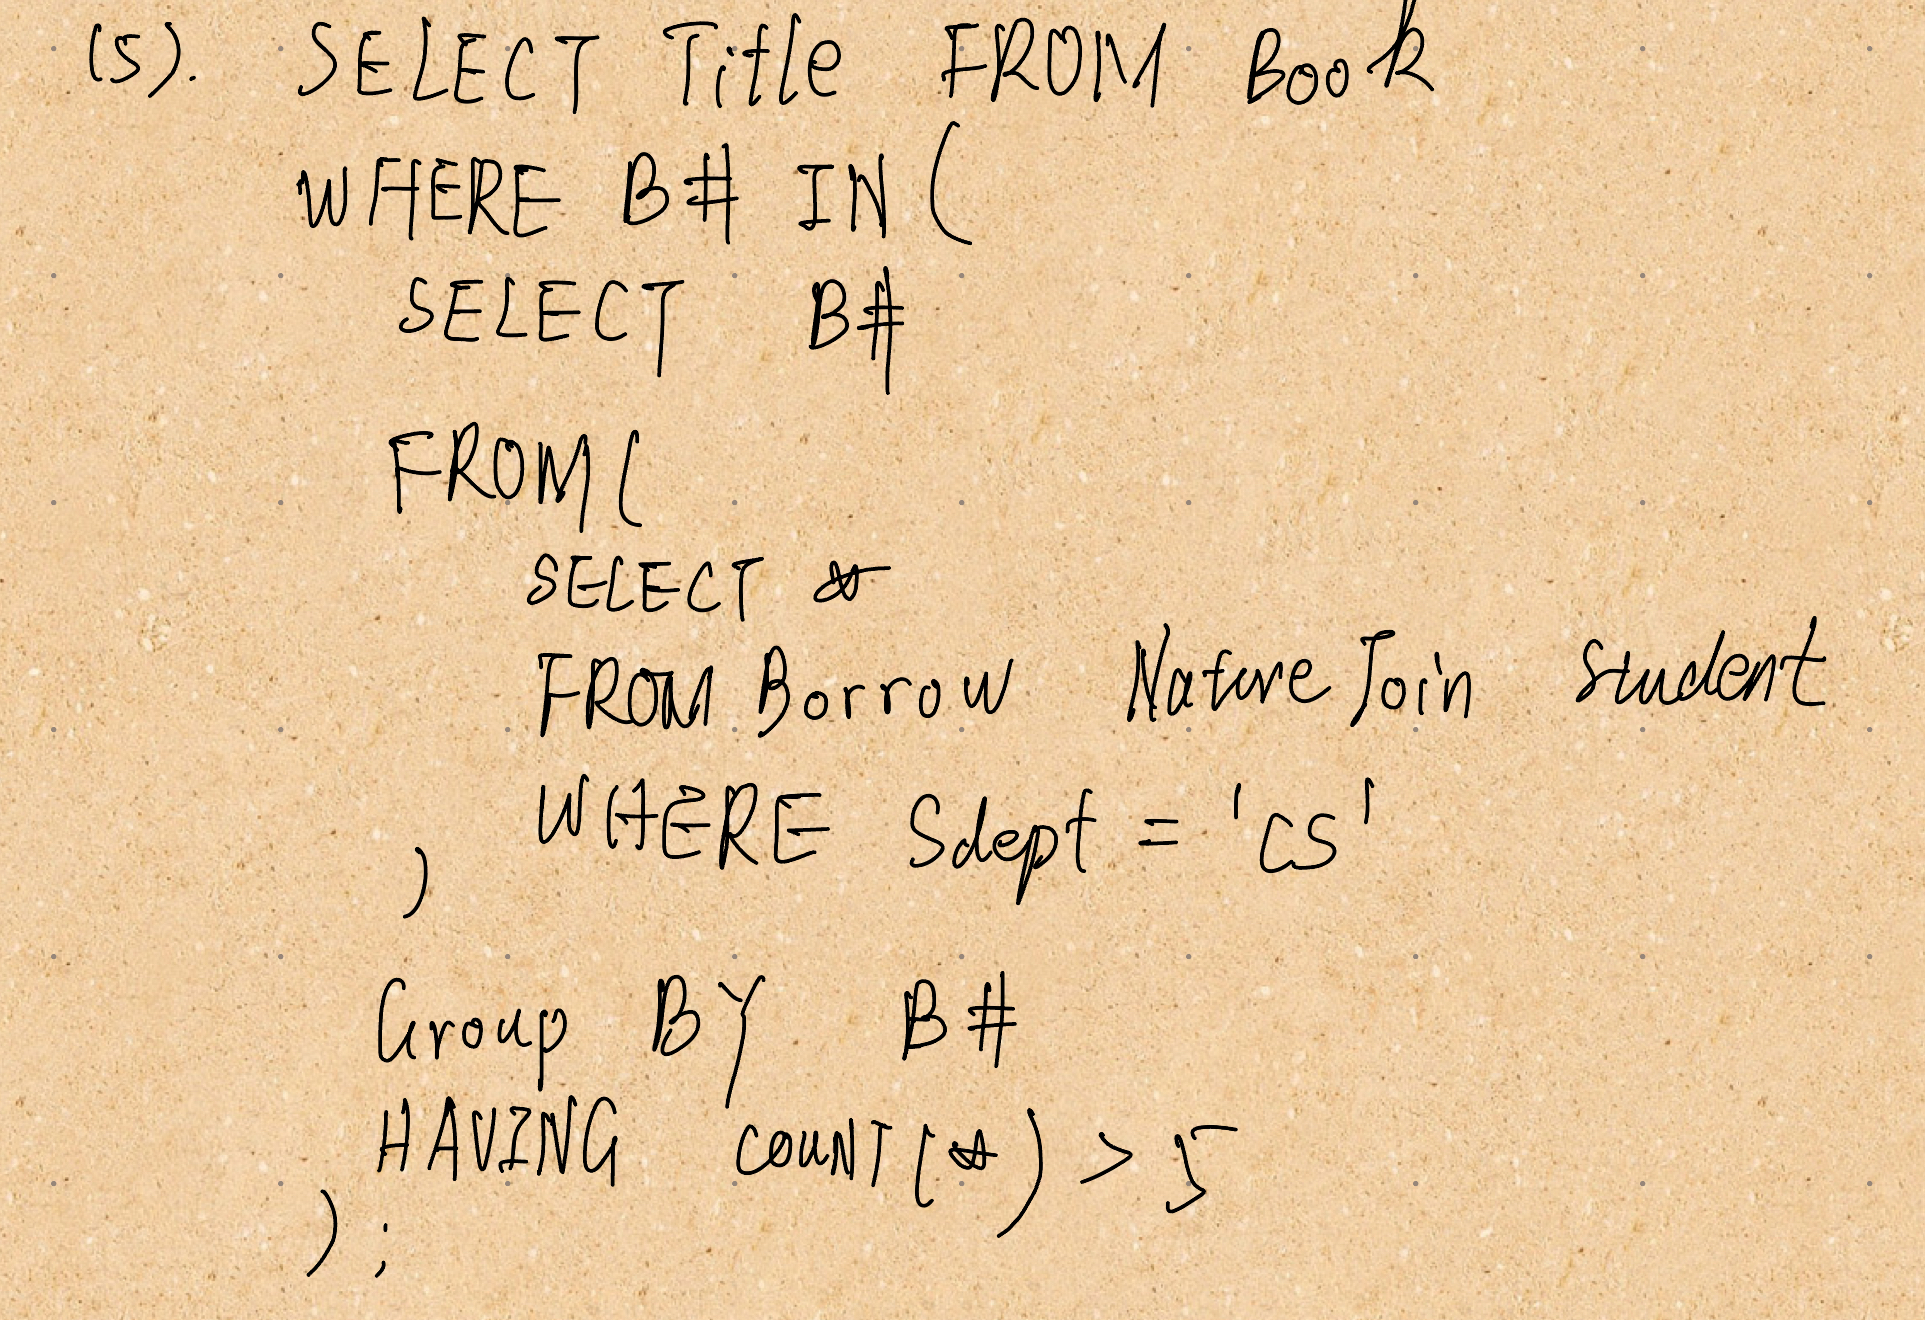 (5). SELECT Title FROM Book
WHERE B# IN (
SELECT B#
FROM (
SELECT *
FROM Borrow Nature Join Student
WHERE Sdept = 'CS'
)
Group BY B#
HAVING COUNT(*) > 5
);